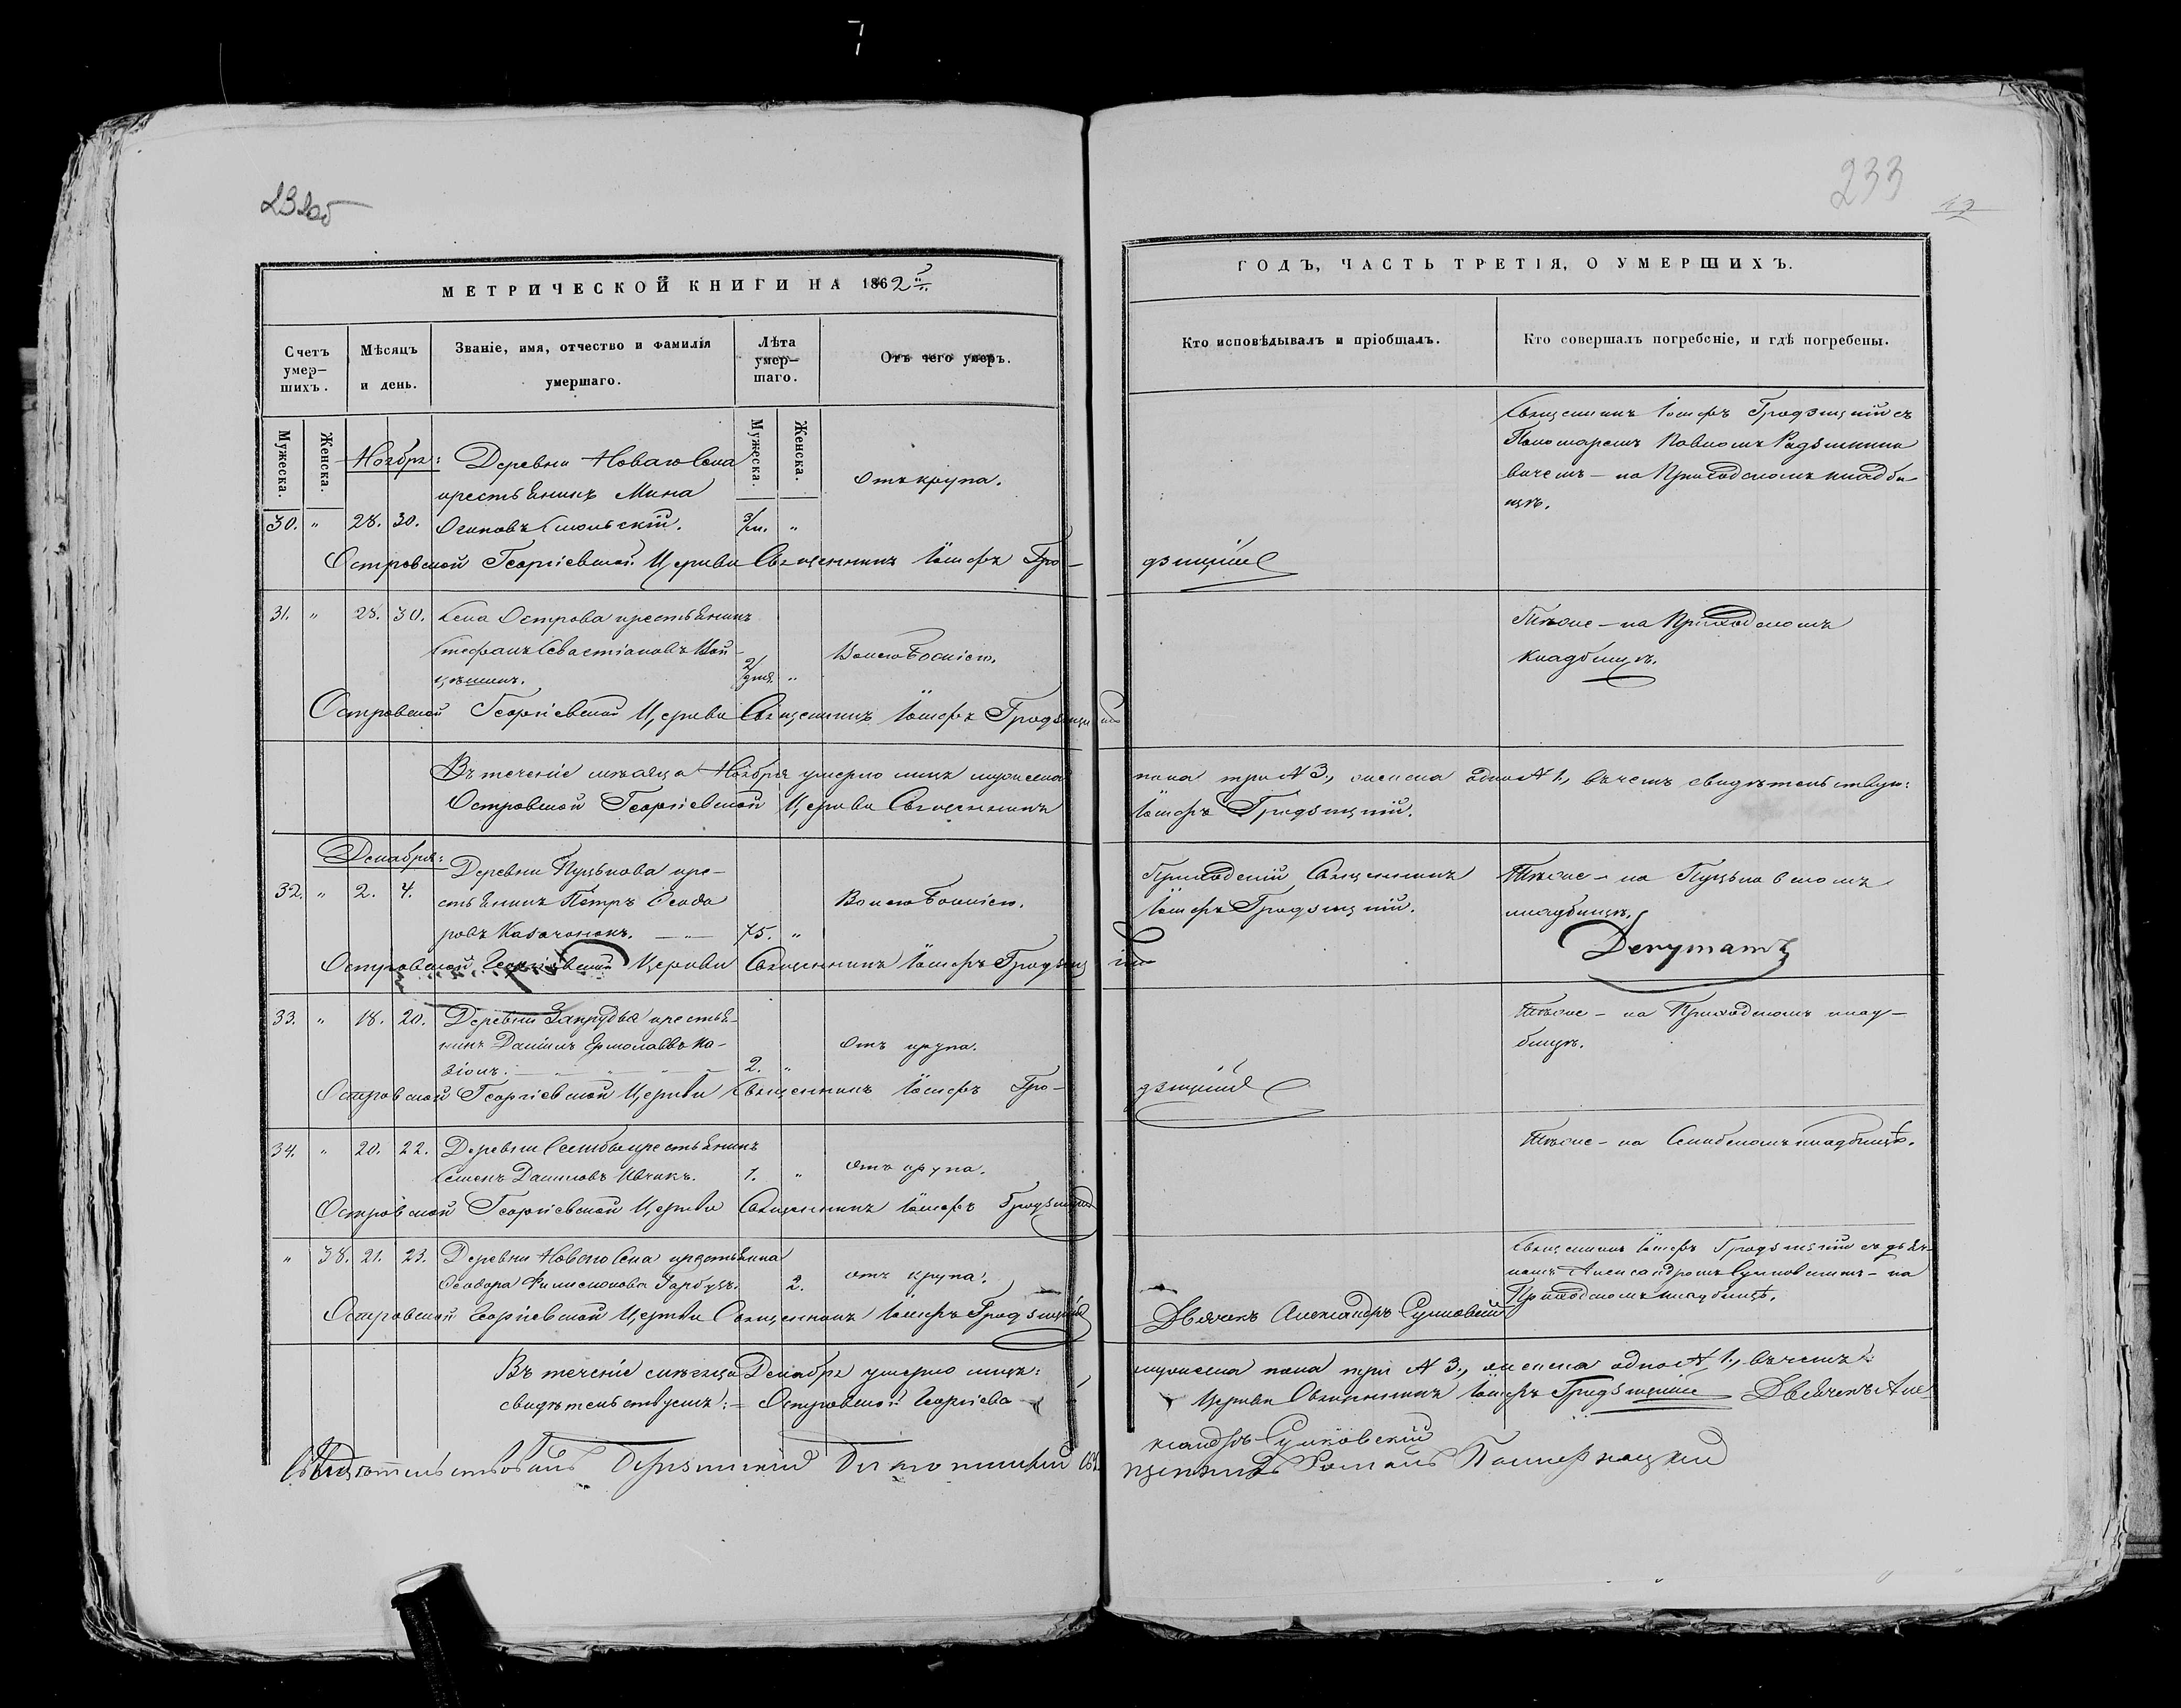 232об
233
МЕТРИЧЕСКОЙ КНИГИ НА 1862й
ГОДЪ, ЧАСТЬ ТРЕТІЯ, О УМЕРШИХЪ.
Счетъ умер-шихъ.
Мѣсяцъ и день.
Званіе, имя, отчество и фамилія умершаго.
Лѣта умер-шаго.
Отъ чего умеръ.
Кто исповѣдывалъ и пріобщалъ.
Кто совершалъ погребеніе, и гдѣ погребены.
Мужеска.
Женска.
Мужеска.
Женска.
Ноября:
Деревни Новаго Села
крестьянинъ Мина
30. " 28. 30. Осиповъ Смольскій. 3/м. "
отъ крупа.
Священникъ Іосифъ Гродзицкій съ
Пономаремъ Павломъ
вичемъ - на Приходскомъ кладби-
щѣ.
Островской Георгіевской Церкви Священникъ Іосифъ Гро-
дзицкій
31. " 28. 30. Села Острова крестьянинъ
Стефанъ Севастіановъ Вой-
2/дня. "
Коклюшію.
Тѣже - на Приходскомъ
кладбищѣ.
Островской Георгіевской Церкви Священникъ Іосифъ Гродзицкій
Въ теченіе мѣсяца Ноября умерло лицъ мужеска
пола три № 3., женска одно № 1., въ чемъ свидѣтельствую:
Островской Георгіевской Церкви Священникъ
Іосифъ Гродзицкій.
Декабря:
Деревни Пуцькова кре-
32. " 2. 4. стьянинъ Петръ Ѳеодо
ровъ 75. "
Приходскій Священникъ
Іосифъ Гродзицкій.
Тѣже - на Пуцьковскомъ
кладбищѣ.
Депутатъ
Островской Георгіевской Церкви Священникъ Іосифъ Гродзицкій
33. " 18. 20. Деревни Запрудья крестья-
нинъ Даніилъ Ермолаевъ Ко-
зіолъ. 2. "
отъ крупа.
Тѣже - на Приходскомъ клад-
бищѣ.
Островской Георгіевской Церкви Священникъ Іосифъ Гро-
дзицкій
34. " 20. 22. Деревни крестьянинъ
Семенъ Даниловъ 1. "
отъ крупа.
Тѣже - на кладбищѣ.
Островской Георгіевской Церкви Священникъ Іосифъ Гродзицкій
" 38. 21. 23. Деревни Новаго Села крестьянка
Ѳеодора Филимонова Гарбузъ. 2.
отъ крупа.
Священникъ Іосифъ Гродзицкій съ дья-
комъ Александромъ Сулковскимъ - на
Приходскомъ кладбищѣ.
Островской Георгіевской Церкви Священникъ Іосифъ Гродзицкій
Дьячекъ Александръ Сулковскій
Въ теченіе мѣсяца Декабря умерло лицъ:
мужеска пола три № 3., женска одно № 1., въ чемъ
свидѣтельствуемъ: - Островской Георгіевс-
Церкви Священникъ Іосифъ Гродзицкій Дьячекъ Але
ксандръ Сулковскій
Свидѣтельствовалъ Благочинный Свя
щенникъ Романъ